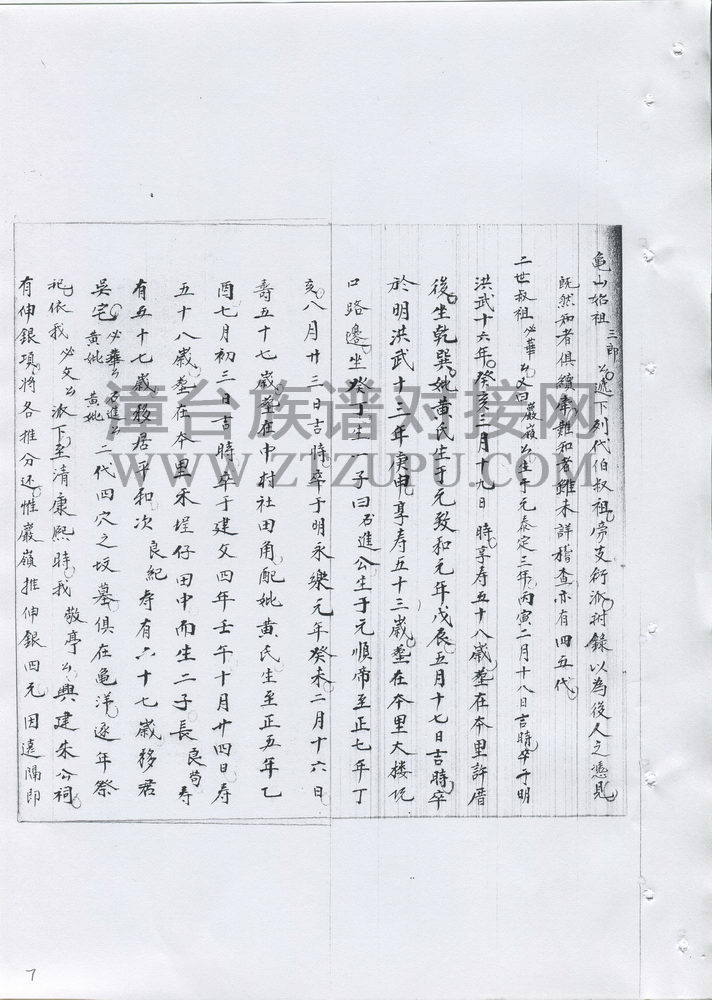 龜山始祖三郎公遞下列代伯叔祖旁支衍派附錄以為後人之憑見
既然知者俱續韋難和者雖未詳稽查亦有四五代
二世叔祖必華公又曰巖嶺公生于元泰定三年丙寅二月十八日吉時卒于明
洪武十六年癸亥三月十九日時享寿五十八歲塟在本里許厝
後坐乾巽妣黃氏生于元致和元年戊辰五月十七日吉時卒
於明洪武十三年庚申享寿五十三歲塟在本里大楼伉
口路邊坐癸丁生一子曰石進公生于元順帝至正七年丁
亥八月廿三日吉時卒于明永樂元年癸未二月十六日
壽五十七歲塟在中村社田角配妣黃氏生至正五年乙
酉七月初三日吉時卒于建文四年壬午十月廿四日寿
五十八歲塟在本里禾埕仔田中而生二子長良苟寿
有五十七歲移居平和次良紀寿有六十七歲移君
吳宅必華公黃妣石進公黃妣二代四穴之坟墓俱在龜洋逐年祭
祀依我必文公派下至清康熙時我敬亭公興建朱公祠
有伸銀項將各推分还惟巖嶺推伸銀四元因遠隔即
漳台族谱对接网
WWW.ZTZUPU.COM
7